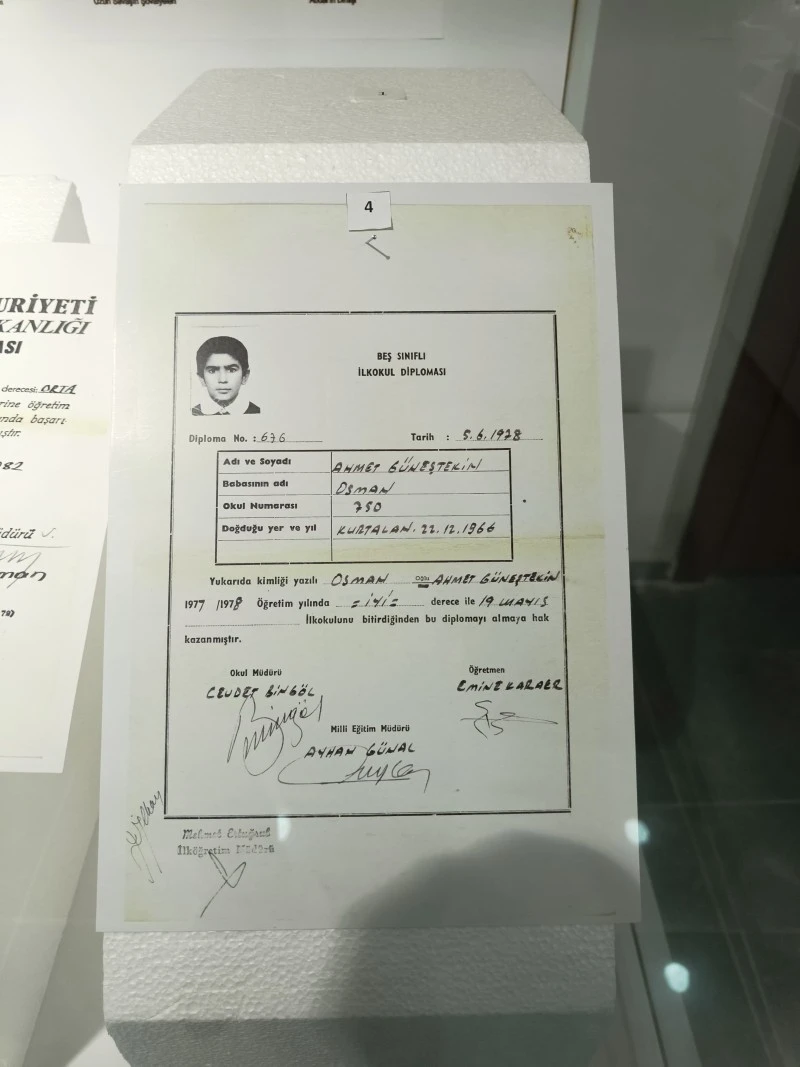 4
BEŞ SINIFLI
İLKOKUL DİPLOMASI
Diploma No. : 676 Tarih : 5.6.1978
Adı ve Soyadı AHMET GÜNEŞTEKİN
Babasının adı OSMAN
Okul Numarası 750
Doğduğu yer ve yıl KURTALAN. 22.12.1966
Yukarıda kimliği yazılı OSMAN oğlu AHMET GÜNEŞTEKİN
1977 /1978 Öğretim yılında =İYİ= derece ile 19 MAYIS
İlkokulunu bitirdiğinden bu diplomayı almaya hak
kazanmıştır.
Okul Müdürü Öğretmen
CEVDET BİNGÖL EMİNE KARAER
Bingöl
Milli Eğitim Müdürü
AYHAN GÜNAL
İlköğretim Müdürü
URİYETİ
KANLIĞI
ASI
derecesi: ORTA
rine öğretim
nda başarı-
ştır.
82
dürü
man